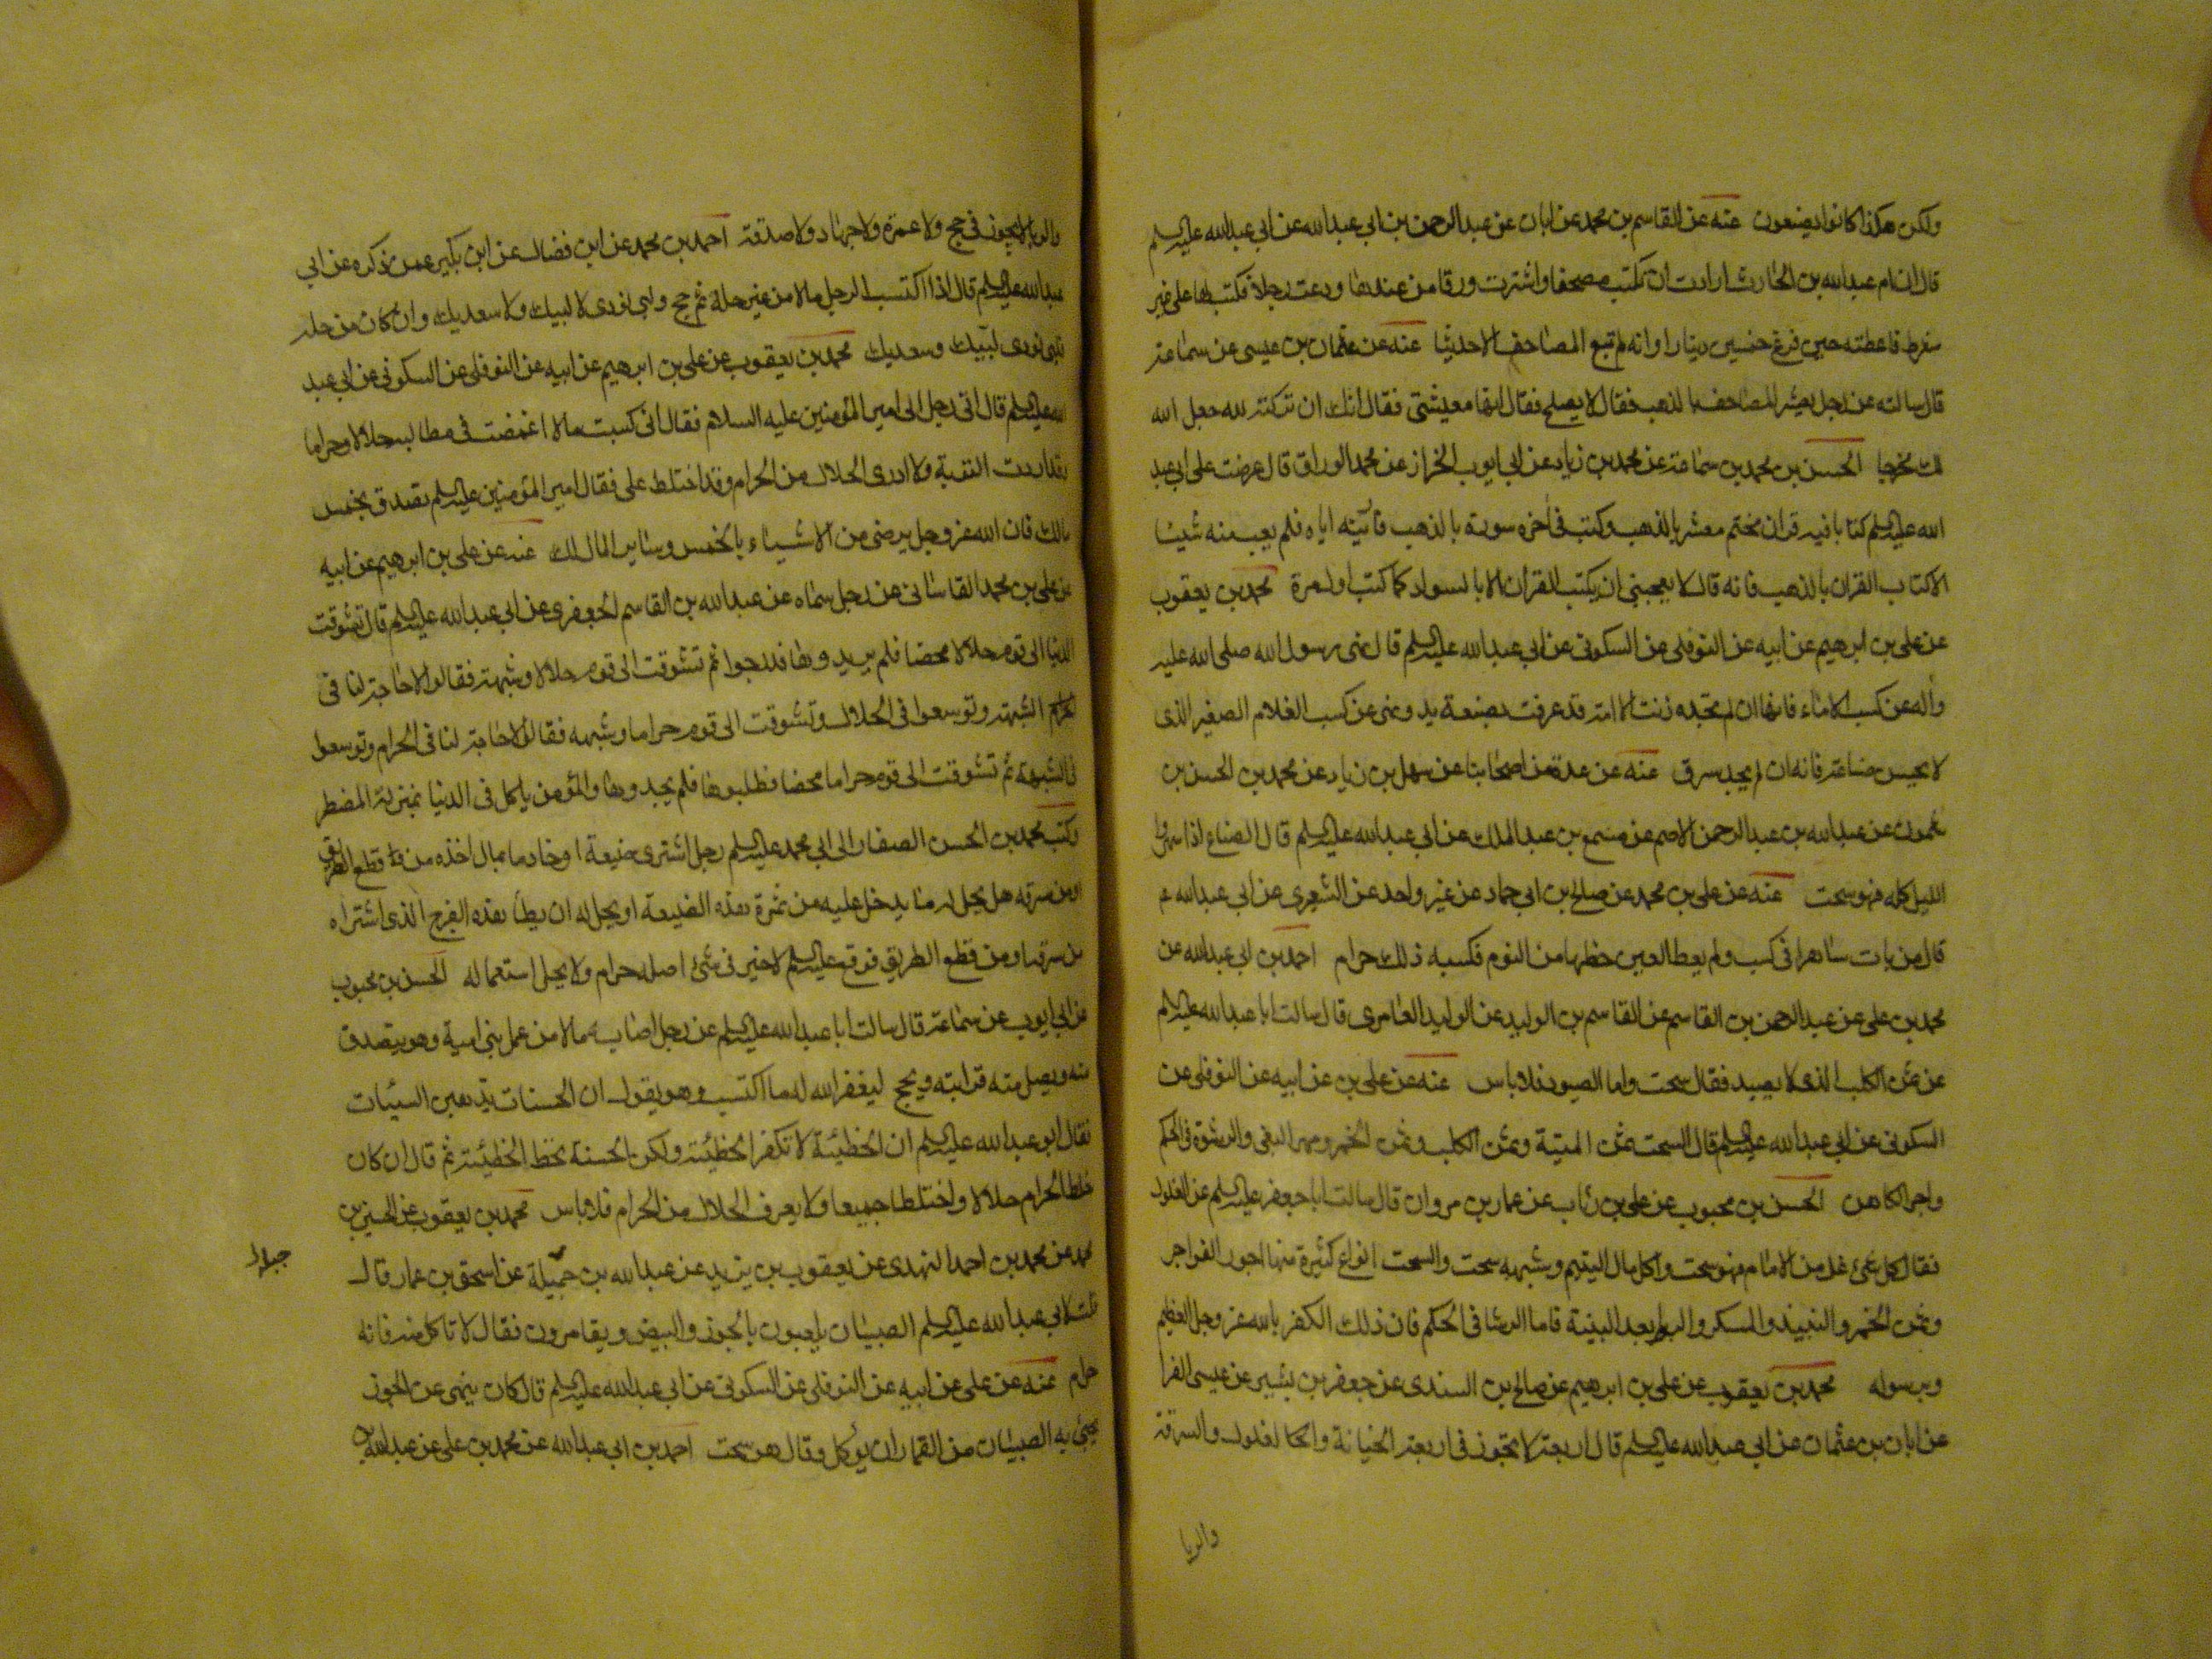 ولكن هكذا كانوا يصنعون عنه عن القاسم بن محمد عن ابان عن عبد الرحمن بن ابي عبد الله عن ابي عبد الله عليه السلم
قال ان ام عبد الله بن الحارث ارادت ان تكتب مصحفا واشترت ورقا من عندها ودعت رجلا فكتب لها على غير
شرط فاعطته حين فرغ خمسين دينارا وانه لم تبع المصاحف الا حديثا عنه عن عثمان بن عيسى عن سماعة
قال سالته عن رجل يعشر المصاحف بالذهب فقال لا يصلح فقال انها معيشتي فقال انك ان تركته لله جعل الله
لك مخرجا الحسن بن محمد بن سماعة عن محمد بن زياد عن ابي ايوب الخزاز عن محمد الوراق قال عرضت على ابي عبد
الله عليه السلم كتابا فيه قران مختم معشر بالذهب وكتب في اخره سورة بالذهب فاريته اياه فلم يعب منه شيئا
الا كتاب القران بالذهب فانه قال لا يعجبني ان يكتب القران الا بالسواد كما كتب اول مرة محمد بن يعقوب
عن علي بن ابرهيم عن ابيه عن النوفلي عن السكوني عن ابي عبد الله عليه السلم قال نهى رسول الله صلى الله عليه
واله عن كسب الاماء فانها ان لم تجده زنت الا امة قد عرفت بصنعة يد ونهى عن كسب الغلام الصغير الذي
لا يحسن صناعة فانه ان لم يجد سرق عنه عن عدة من اصحابنا عن سهل بن زياد عن محمد بن الحسن بن
شمون عن عبد الله بن عبد الرحمن الاصم عن مسمع بن عبد الملك عن ابي عبد الله عليه السلم قال الصناع اذا سهروا
الليل كله فهو سحت عنه عن علي بن محمد عن صالح بن ابي حماد عن غير واحد عن الشعيري عن ابي عبد الله ع
قال من بات ساهرا في كسب ولم يعط العين حظها من النوم فكسبه ذلك حرام احمد بن ابي عبد الله عن
محمد بن علي عن عبد الرحمن بن القاسم عن القاسم بن الوليد عن الوليد العامري قال سالت ابا عبد الله عليه السلم
عن ثمن الكلب الذي لا يصيد فقال سحت واما الصيود فلا باس عنه عن علي بن عن ابيه عن النوفلي عن
السكوني عن ابي عبد الله عليه السلم قال السحت ثمن الميتة وثمن الكلب وثمن الخمر ومهر البغي والرشوة في الحكم
واجر الكاهن الحسن بن محبوب عن علي بن رئاب عن عمار بن مروان قال سالت ابا جعفر عليه السلم عن الغلول
فقال كل شئ غل من الامام فهو سحت واكل مال اليتيم وشبهه سحت والسحت انواع كثيرة منها اجور الفواجر
وثمن الخمر والنبيذ والمسكر والربا بعد البينة فاما الرشا في الحكم فان ذلك الكفر بالله عز وجل العظيم
وبرسوله محمد بن يعقوب عن علي بن ابرهيم عن صالح بن السندي عن جعفر بن بشير عن عيسى الفرا
عن ابان بن عثمان عن ابي عبد الله عليه السلم قال اربعة لا تجوز في اربعة الخيانة والغلول والسرقة
والربا
والربا لا يجوز في حج ولا عمرة ولا جهاد ولا صدقة احمد بن محمد عن ابن فضال عن ابن بكير عمن ذكره عن ابي
عبد الله عليه السلم قال اذا اكتسب الرجل مالا من غير حله ثم حج ولبى نودي لا لبيك ولا سعديك وان كان من حله
فلبى نودي لبيك وسعديك محمد بن يعقوب عن علي بن ابرهيم عن ابيه عن النوفلي عن السكوني عن ابي عبد
الله عليه السلم قال اتى رجل الى امير المؤمنين عليه السلام فقال انى كسبت مالا اغمضت في مطالبه حلالا وحراما
وقد اردت التوبة ولا ادري الحلال من الحرام وقد اختلط على فقال امير المؤمنين عليه السلم تصدق بخمس
مالك فان الله عز وجل يرضى من الاشياء بالخمس وساير المال لك عنه عن علي بن ابرهيم عن ابيه
عن علي بن محمد القاساني عن رجل سماه عن عبد الله بن القاسم الجعفري عن ابي عبد الله عليه السلم قال تشوقت
الدنيا الى قوم حلالا محضا فلم يريدوها فدرجوا ثم تشوقت الى قوم حلالا وشبهة فقالوا لا حاجة لنا في
الشبهة وتوسعوا في الحلال وتشوقت الى قوم حراما وشبهه فقالوا لا حاجة لنا في الحرام وتوسعوا
في الشبهة ثم تشوقت الى قوم حراما محضا فطلبوها فلم يجدوها والمؤمن ياكل في الدنيا بمنزلة المضطر
وكتب محمد بن الحسن الصفار الى ابي محمد عليه السلم رجل اشترى ضيعة او خادما بمال اخذه من قطع الطريق
او من سرقه هل يحل له ما يدخل عليه من ثمرة هذه الضيعة او يحل له ان يطأ هذه الفرج الذي اشتراه
من سرقه او من قطع الطريق فوقع عليه السلم لا خير في شئ اصله حرام ولا يحل استعماله الحسن بن محبوب
عن ابي ايوب عن سماعة قال سالت ابا عبد الله عليه السلم عن رجل اصاب مالا من عمل بني امية وهو يتصدق
منه ويصل منه قرابته ويحج ليغفر الله له ما اكتسب وهو يقول ان الحسنات يذهبن السيئات
فقال ابو عبد الله عليه السلم ان الخطيئة لا تكفر الخطيئة ولكن الحسنة تحط الخطيئة ثم قال ان كان
خلط الحرام حلالا واختلطا جميعا ولا يعرف الحلال من الحرام فلا باس محمد بن يعقوب عن الحسين بن
محمد عن محمد بن احمد النهدي عن يعقوب بن يزيد عن عبد الله بن جميلة عن اسحق بن عمار قال
قلت لابي عبد الله عليه السلم الصبيان يلعبون بالجوز والبيض ويقامرون فقال لا تاكل منه فانه
حرام عنه عن علي عن ابيه عن النوفلي عن السكوني عن ابي عبد الله عليه السلم قال كان ينهى عن الجوز
يجئ به الصبيان من القمار ان يؤكل وقال هو سحت احمد بن ابي عبد الله عن محمد بن علي عن عبد الله بن